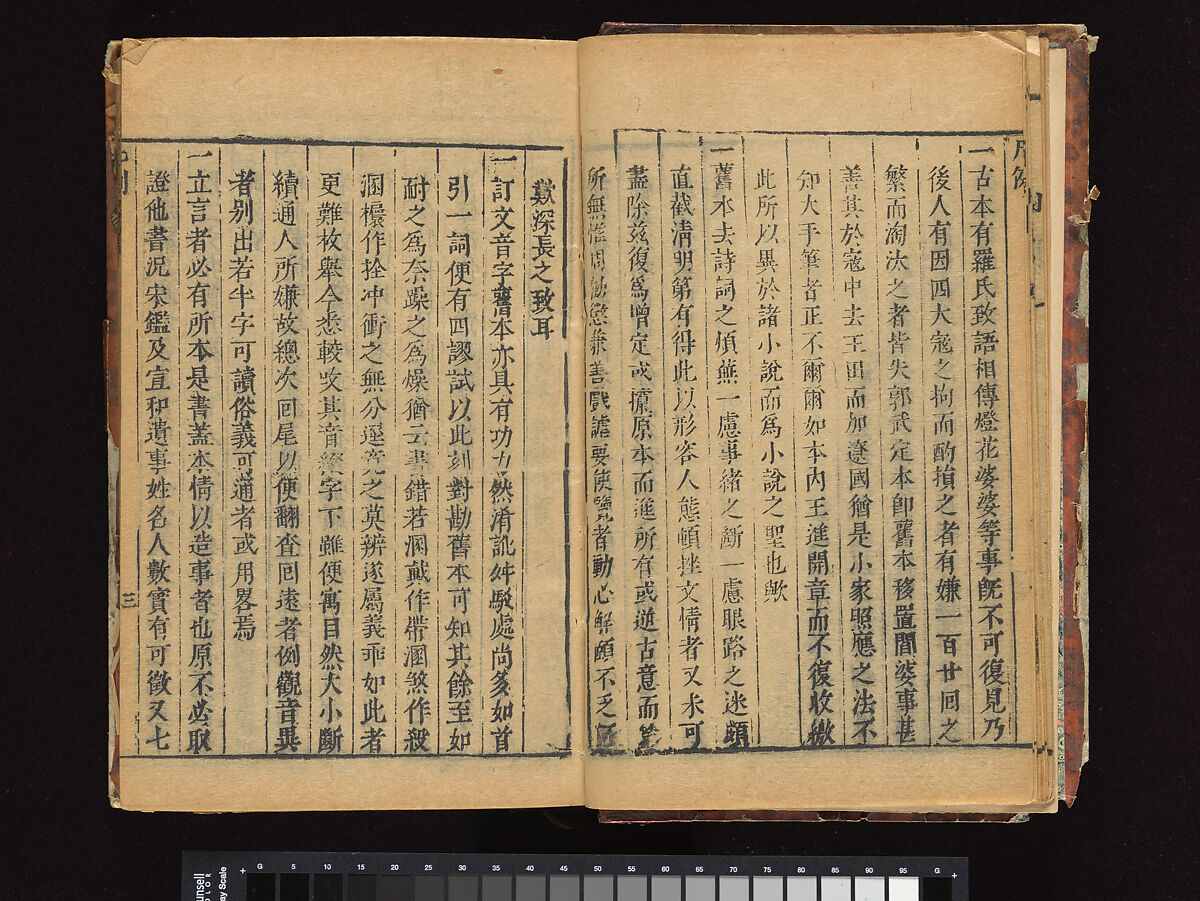 一古本有羅氏致語相傳燈花婆婆等事旣不可復見乃
後人有因四大寇之拘而酌損之者有嫌一百廿回之
繁而淘汰之者皆失郭武定本卽舊本移置閻婆事甚
善其於寇中去王田而加遼國猶是小家照應之法不
知大手筆者正不爾爾如本內王進開章而不復收繳
此所以異於諸小說而爲小說之聖也歟
一舊本去詩詞之煩蕪一慮事緒之斷一慮眼路之迷頗
直截淸明第有得此以形容人態頓挫文情者又未可
盡除茲復爲增定或攛原本而進所有或逆古意而
所無惟周勸懲兼善戲謔要使覽者動心解頤不乏
歎深長之致耳
一訂文音字舊本亦具有功力然淆訛舛駁處尚多如首
引一詞便有四謬試以此刻對勘舊本可知其餘至如
耐之爲奈躁之爲燥猶云書錯若溷戴作帶溷煞作殺
溷欓作拴冲衝之無分逕竟之莫辨遂屬義乖如此者
更難枚舉今悉較改其音綴字下雖便寓目然大小斷
續通人所嫌故總次回尾以便翻查回遠者例觀音異
者別出若半字可讀俗義可通者或用畧焉
一立言者必有所本是書蓋本情以造事者也原不必取
證他書況宋鑑及宣和遺事姓名人數實有可徵又七
三
G 5 10 15 20 25 30 35 40 45 50 55 60 65 70 75 80 85 90 95 G